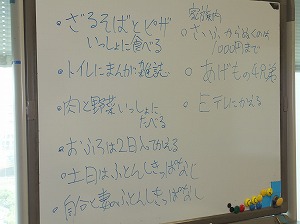 ・ざるそばとピザ
いっしょに食べる
・トイレにまんが雑誌
・肉と野菜いっしょに
たべる
・おふろは2日入ってかえる
・土日はふとんしきっぱなし
・自分と妻のふとんしきっぱなし
家族内
○さいふからぬくのは
1000円まで
○あげもの4兄弟
○Eテレにかえる